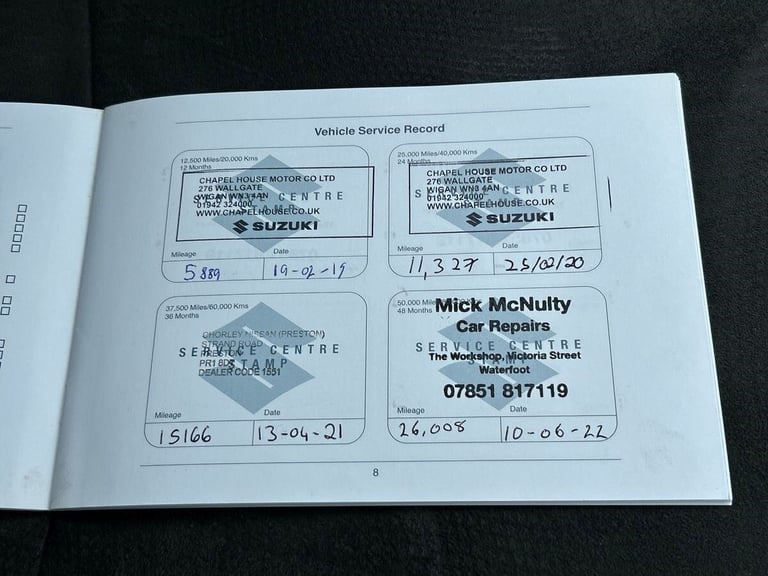 Vehicle Service Record
12,500 Miles/20,000 Kms
12 Months
CHAPEL HOUSE MOTOR CO LTD
276 WALLGATE
WIGAN WN3 4AN
SERVICE CENTRE
01942 324000
STAMP
WWW.CHAPELHOUSE.CO.UK
SUZUKI
Mileage
Date
5889
19-02-19
25,000 Miles/40,000 Kms
24 Months
CHAPEL HOUSE MOTOR CO LTD
276 WALLGATE
WIGAN WN3 4AN
SERVICE CENTRE
01942 324000
STAMP
WWW.CHAPELHOUSE.CO.UK
SUZUKI
Mileage
Date
11,327
25/02/20
37,500 Miles/60,000 Kms
36 Months
CHORLEY NISSAN (PRESTON)
STRAND ROAD
SERVICE CENTRE
PRESTON
STAMP
PR1 8D
DEALER CODE 1551
Mileage
Date
15166
13-04-21
50,000 Miles
48 Months
Mick McNulty
Car Repairs
SERVICE CENTRE
The Workshop, Victoria Street
STAMP
Waterfoot
07851 817119
Mileage
Date
26,008
10-06-22
8